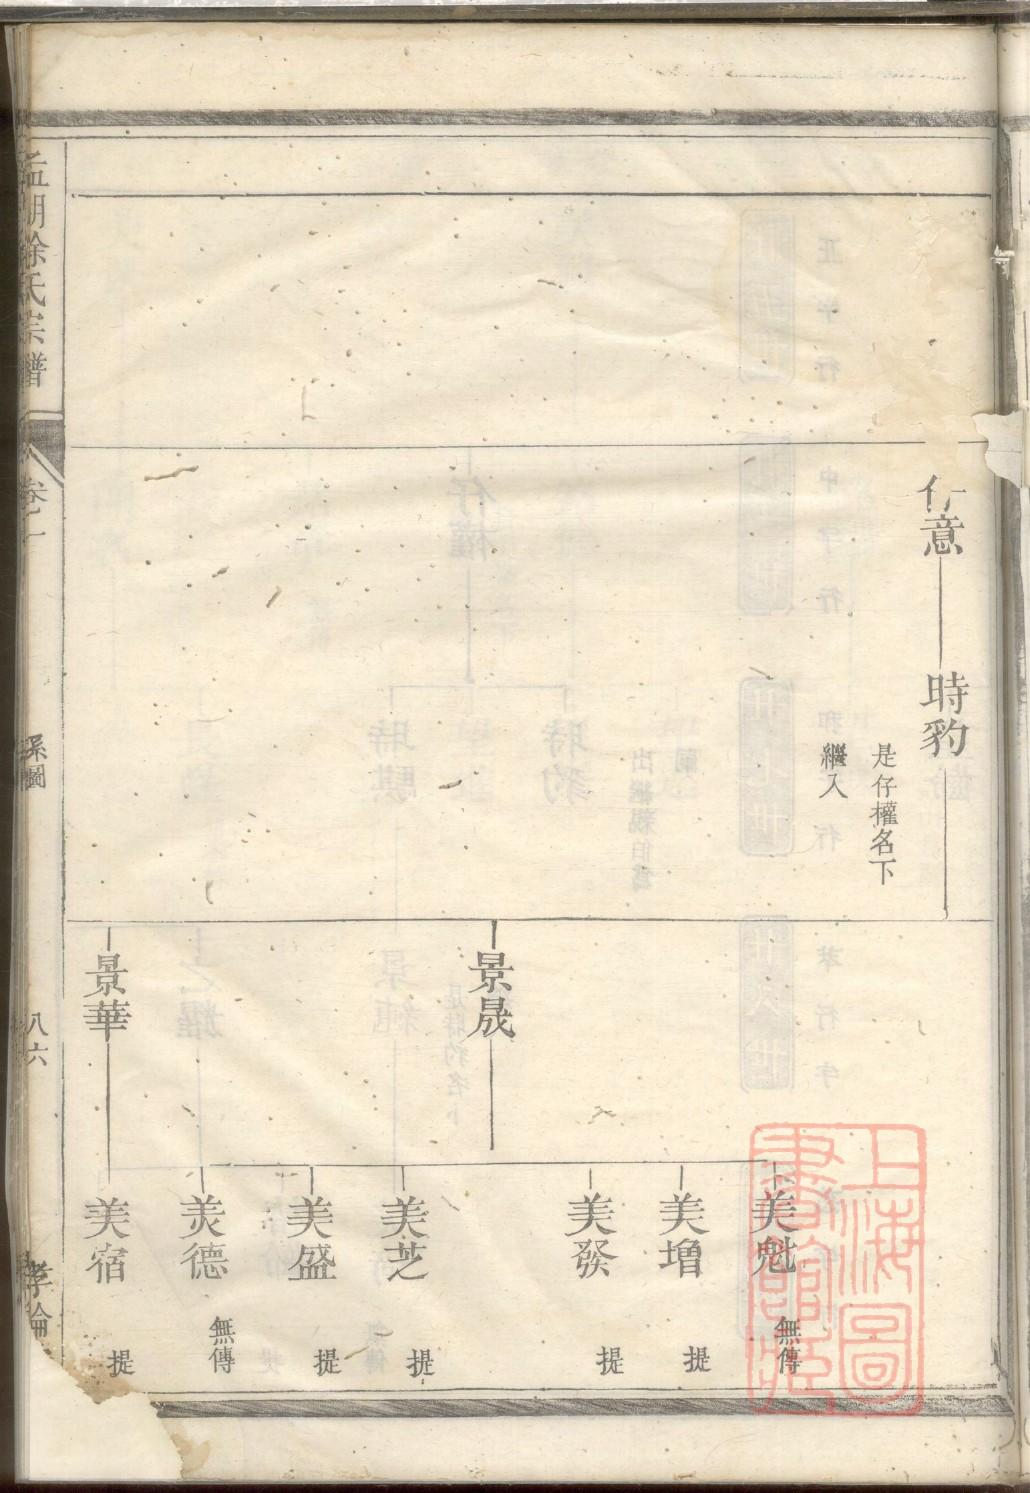 仔意
時豹
是仔權名下
繼入
景晟
景華
美魁
無傳
美增
提
美發
提
美芝
提
美盛
提
美德
無傳
美宿
提
孟湖徐氏宗譜
卷二
系圖
八六
孝倫
上海圖
書館藏